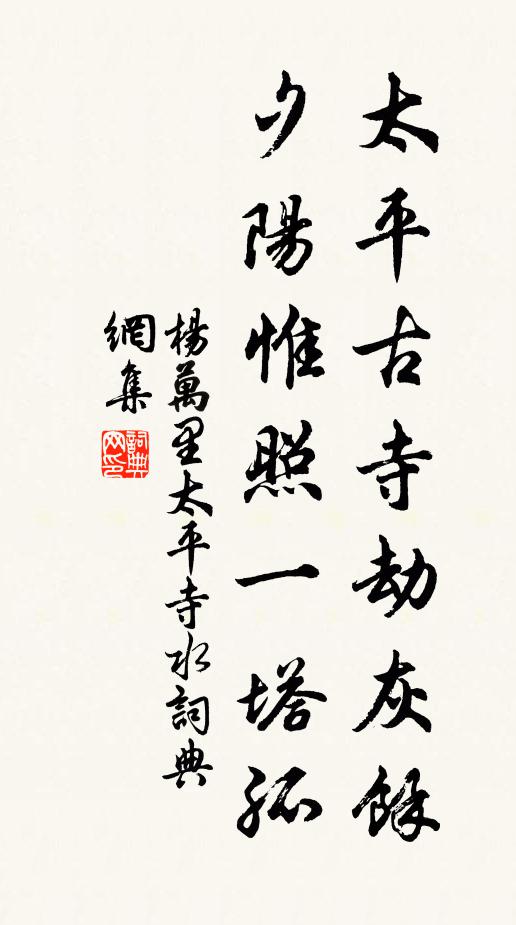 太平古寺劫灰餘
夕陽惟照一塔孤
楊萬里太平寺水詞典
網集
詞典
网印